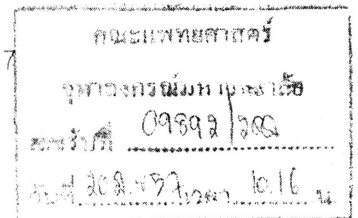 คณะแพทยศาสตร์
จุฬาลงกรณ์มหาวิทยาลัย
เลขรับที่ 09892
วันที่ เวลา 10.16 น.